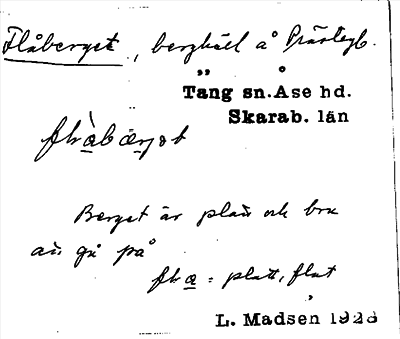 Flåberget, berghäll å Prästegb.
Tång sn. Åse hd.
Skarab. län
Berget är platt och bra
att gå på
fla = platt, flat
L. Madsén 1928